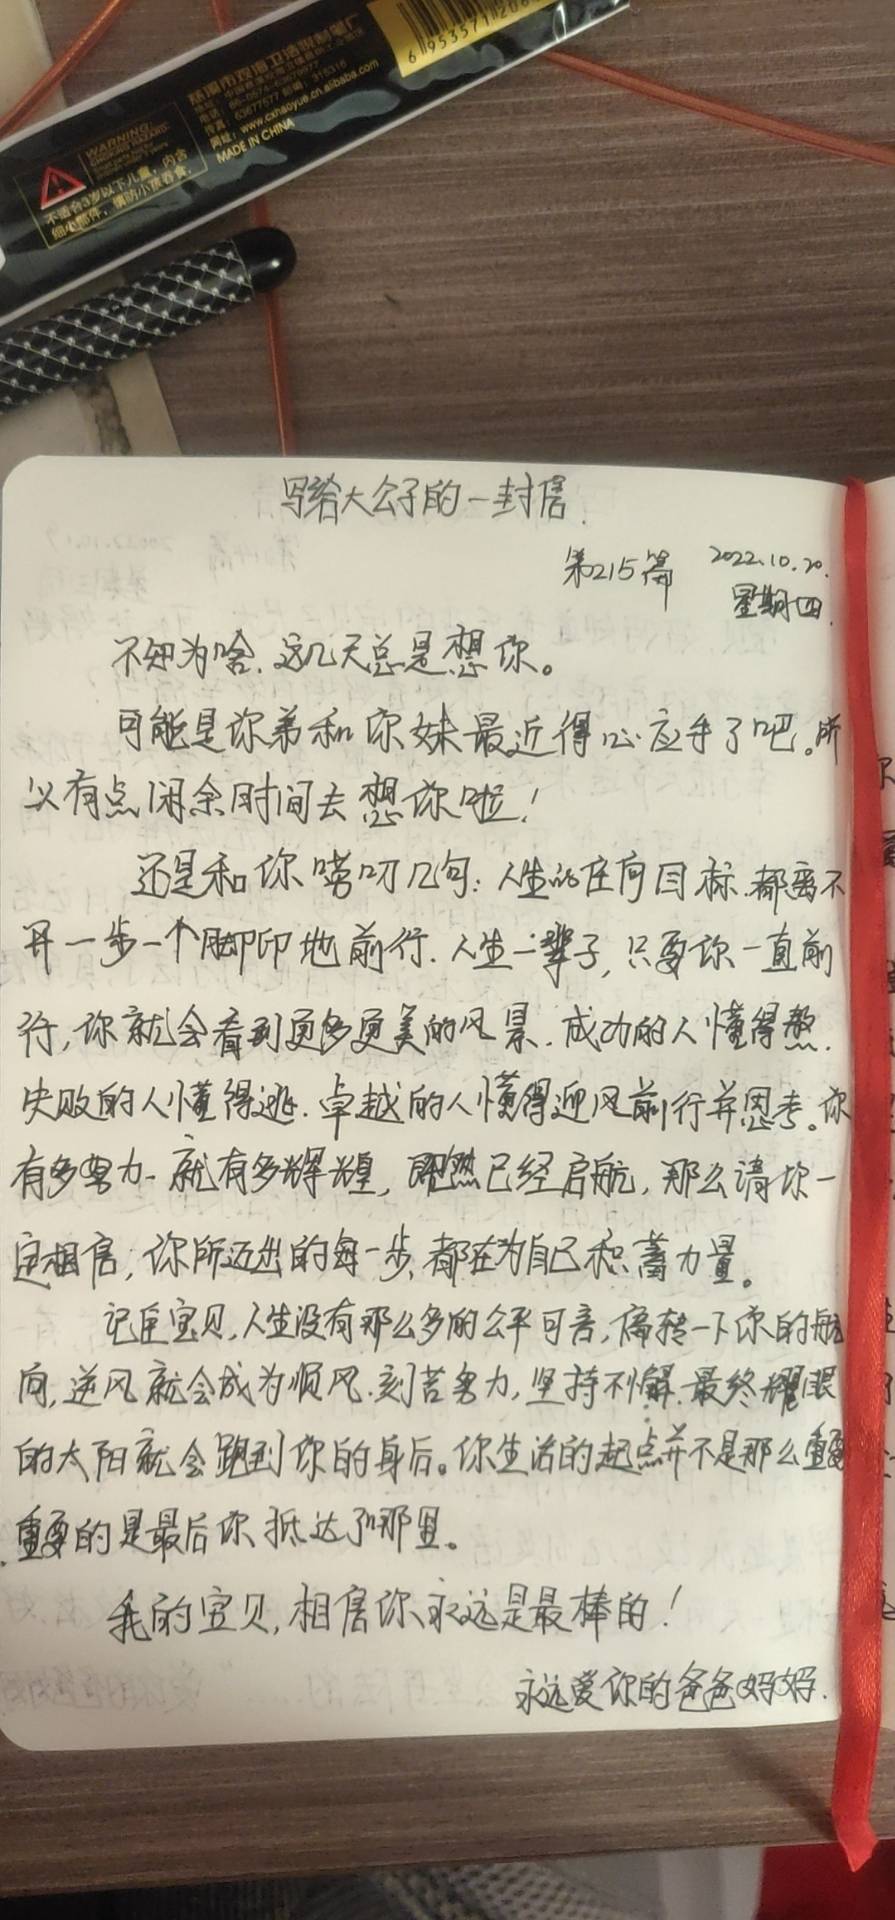 慈溪市观海卫洁悦制笔厂
传真：63677577 邮编：315315
网址：www.cxhaoyue.cn.alibaba.com
MADE IN CHINA
6 953571
WARNING
不适合3岁以下儿童，内含
细小部件，慎防小孩吞食。
写给大公子的一封信.
第215篇 2022.10.20.
星期四.
不知为啥.这几天总是想你。
可能是你弟和你妹最近得心应手了吧。所
以有点闲余时间去想你啦！
还是和你唠叨几句：人生的任何目标.都离不
开一步一个脚印地前行.人生一辈子，只要你一直前
行，你就会看到更多更美的风景.成功的人懂得熬.
失败的人懂得逃.卓越的人懂得迎风前行并思考。你
有多努力.就有多辉煌，既然已经启航，那么请你一
定相信，你所迈出的每一步，都在为自己积蓄力量。
记住宝贝，人生没有那么多的公平可言，偏转一下你的航
向，逆风就会成为顺风.刻苦努力，坚持不懈.最终耀眼
的太阳就会跑到你的身后。你生活的起点并不是那么重要
重要的是最后你抵达了哪里。
我的宝贝，相信你永远是最棒的！
永远爱你的爸爸妈妈.